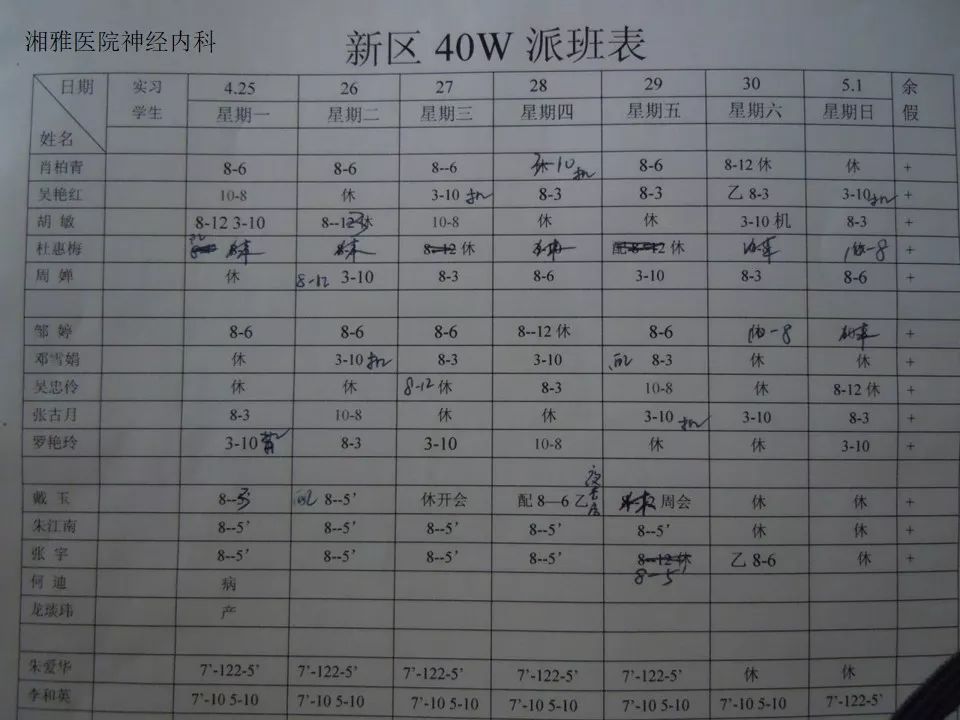 湘雅医院神经内科
新区 40W 派班表
日期 实习 4.25 26 27 28 29 30 5.1 余
学生 星期一 星期二 星期三 星期四 星期五 星期六 星期日 假
姓名
肖柏青 8-6 8-6 8--6 -10 机 8-6 8-12 休 休 +
吴艳红 10-8 休 3-10 机 8-3 8-3 乙 8-3 3-10 机 +
胡 敏 8-12 3-10 8--12 10-8 休 休 3-10 机 8-3 +
杜惠梅 8--12 休 配 8-12 休 -8 +
周 婵 休 8-12 3-10 8-3 8-6 3-10 8-3 8-6 +
邹 婷 8-6 8-6 8-6 8--12 休 8-6 -8 +
邓雪娟 休 3-10 机 8-3 3-10 配 8-3 休 休 +
吴忠伶 休 休 8-12 休 8-3 10-8 休 8-12 休 +
张古月 8-3 10-8 休 休 3-10 机 3-10 8-3 +
罗艳玲 3-10 8-3 3-10 10-8 休 休 3-10 +
戴 玉 8--5 配 8--5’ 休开会 配 8—6 乙 夜 周会 休 休 +
朱江南 8--5’ 8--5’ 8--5’ 8--5’ 8--5’ 休 休 +
张 宇 8--5’ 8--5’ 8--5’ 8--5’ 8--12 休 乙 8-6 休 +
8-5’
何 迪 病
龙琰玮 产
朱爱华 7’-122-5’ 7’-122-5’ 7’-122-5’ 7’-122-5’ 7’-122-5’ 休 休
李和英 7’-10 5-10 7’-10 5-10 7’-10 5-10 7’-10 5-10 7’-10 5-10 7’-10 5-10 7’-122-5’